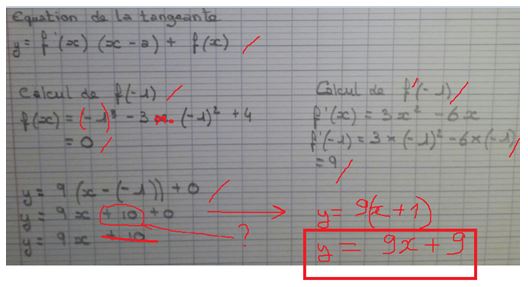 Equation de la tangeante
y = f'(x) (x - a) + f(x)
Calcul de f(-1)
f(x) = (-1)³ - 3 × (-1)² + 4
= 0
Calcul de f'(-1)
f'(x) = 3x² - 6x
f'(-1) = 3 × (-1)² - 6 × (-1)
= 9
y = 9 (x - (-1)) + 0
y = 9 x + 10 + 0
y = 9 x + 10
?
y = 9(x + 1)
y = 9x + 9